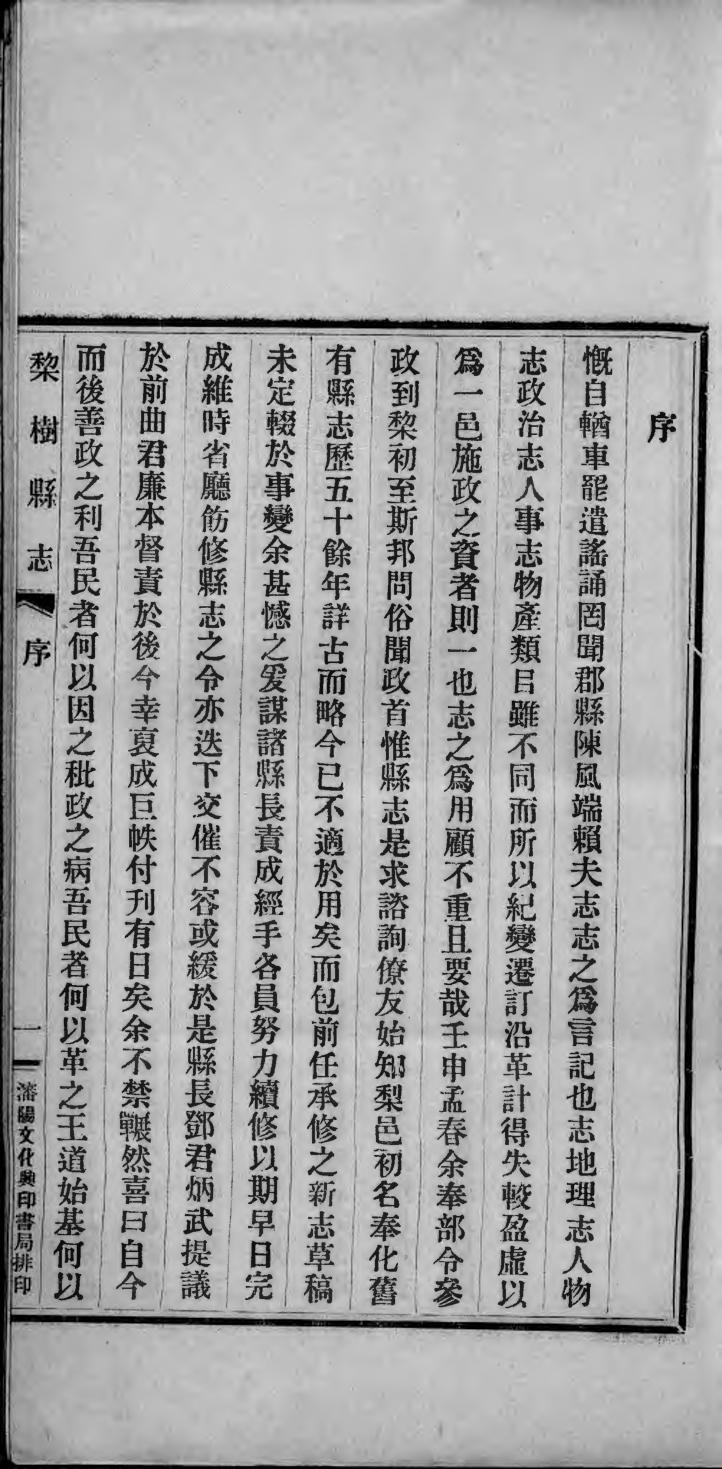 序
慨自輶車罷遣謠誦罔聞郡縣陳風端賴夫志志之爲言記也志地理志人物
志政治志人事志物產類目雖不同而所以紀變遷訂沿革計得失較盈虛以
爲一邑施政之資者則一也志之爲用顧不重且要哉壬申孟春余奉部令參
政到棃初至斯邦問俗聞政首惟縣志是求諮詢僚友始知梨邑初名奉化舊
有縣志歷五十餘年詳古而略今已不適於用矣而包前任承修之新志草稿
未定輟於事變余甚憾之爰謀諸縣長責成經手各員努力續修以期早日完
成維時省廳飭修縣志之令亦迭下交催不容或緩於是縣長鄧君炳武提議
於前曲君廉本督責於後今幸裒成巨帙付刊有日矣余不禁囅然喜曰自今
而後善政之利吾民者何以因之秕政之病吾民者何以革之王道始基何以
棃樹縣志 序 一 瀋陽文化興印書局排印